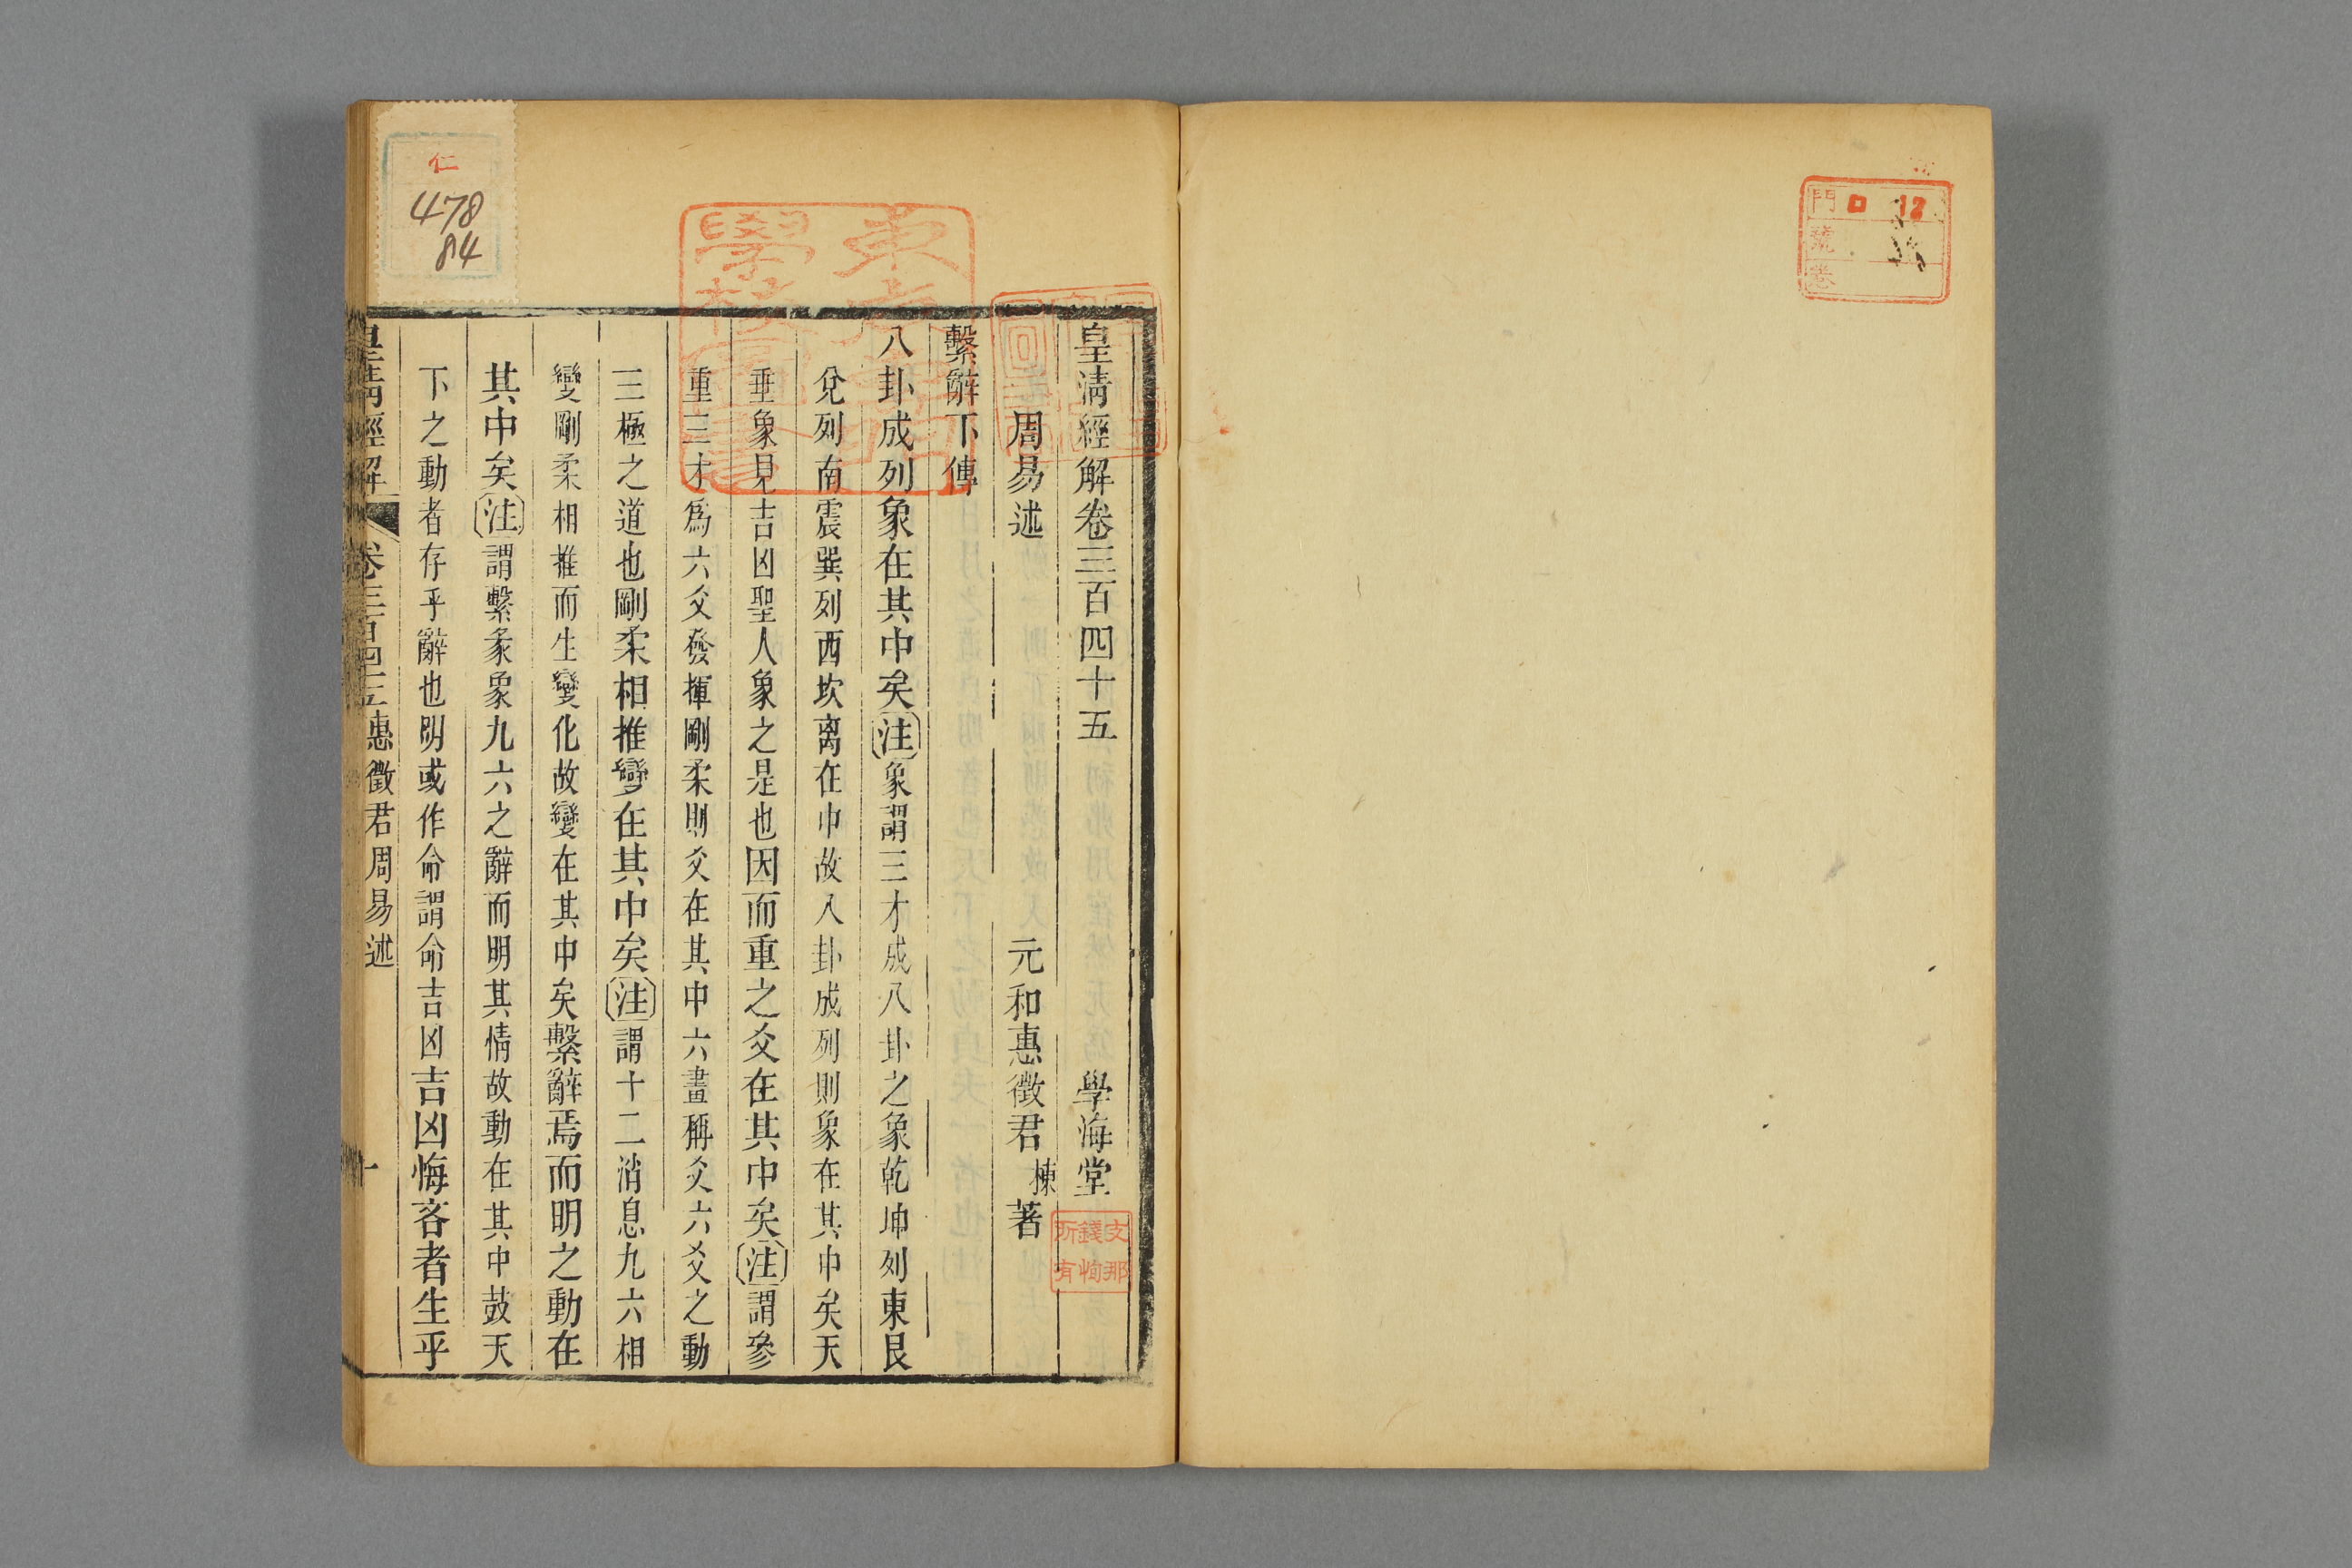 門
號
卷
皇淸經解卷三百四十五
學海堂
周易述
元和惠徵君棟著
繫辭下傳
八卦成列象在其中矣注象謂三才成八卦之象乾坤列東艮
兌列南震巽列西坎离在中故八卦成列則象在其中矣天
垂象見吉凶聖人象之是也因而重之爻在其中矣注謂參
重三才爲六爻發揮剛柔則爻在其中六畫稱爻六爻之動
三極之道也剛柔相推變在其中矣注謂十二消息九六相
變剛柔相推而生變化故變在其中矣繫辭焉而明之動在
其中矣注謂繫彖象九六之辭而明其情故動在其中鼓天
下之動者存乎辭也明或作命謂命吉凶吉凶悔吝者生乎
皇淸經解
卷三百四十五惠徵君周易述
一
仁
478
84
支那
錢恂
所有